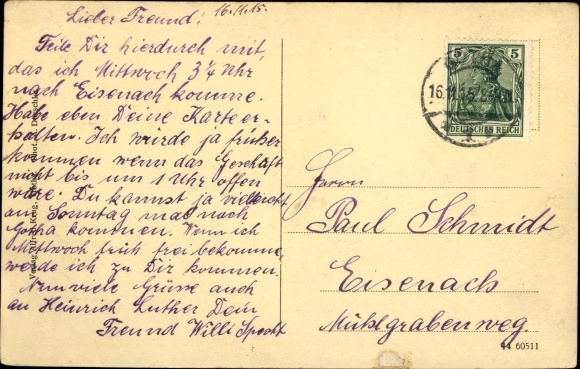 Lieber Freund! 16.11.15.
Teile Dir hierdurch mit,
das ich Mittwoch 3 1/4 Uhr
nach Eisenach komme.
Habe eben Deine Karte er-
halten. Ich würde ja früher
kommen wenn das Geschäft
nicht bis um 1 Uhr offen
wäre. Du kannst ja vielleicht
am Sonntag mal nach
Gotha kommen. Wenn ich
Mittwoch früh frei bekomme,
werde ich zu Dir kommen.
Nun viele Grüsse auch
an Heinrich Luther Dein
Freund Willi Specht
5 5
DEUTSCHES REICH
16.11.15
Herrn
Paul Schmidt
Eisenach
Mühlgrabenweg.
44 60511